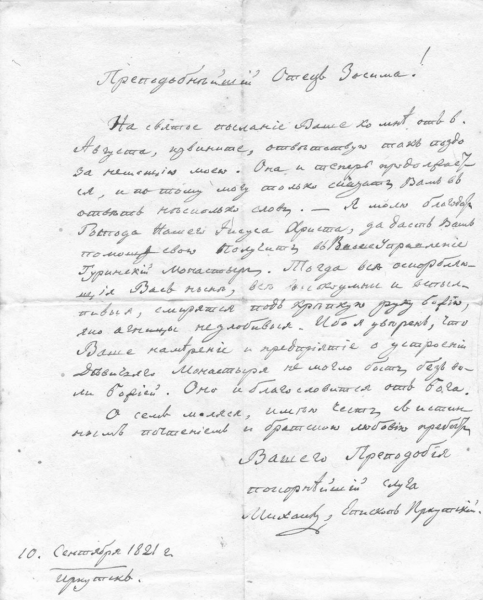 Преподобнѣйшій Отецъ Зосима!
На святое посланіе Ваше ко мнѣ отъ 6.
Августа, извините, отвѣтствую такъ поздо
за немощію моею. Она и теперь продолжает-
ся, и по тому могу только сказать Вамъ въ
отвѣтъ нѣсколько словъ. — Я молю благодар
Господа Нашего Іисуса Христа, да дастъ Вамъ
помощь свою получить въ Ваше Управленіе
Гуринскій Монастырь. Тогда всѣ оскорбляю-
щія Васъ нынѣ, всѣ и вспыль-
чивыя, смирятся подъ крѣпкую руку Божію,
яко агницы незлобивыя. Ибо я увѣренъ, что
Ваше намѣреніе и предпріятіе о устроеніи
Дѣвичьяго Монастыря не могло быть безъ во-
ли Божіей. Оно и благословится отъ Бога.
О семъ моляся, имѣю честь съ истин-
нымъ почтеніемъ и братскою любовію пребыть
Вашего Преподобія
покорнѣйшій слуга
Михаилъ, Епископъ Иркутскій.
10. Сентября 1821 г.
Иркутскъ.